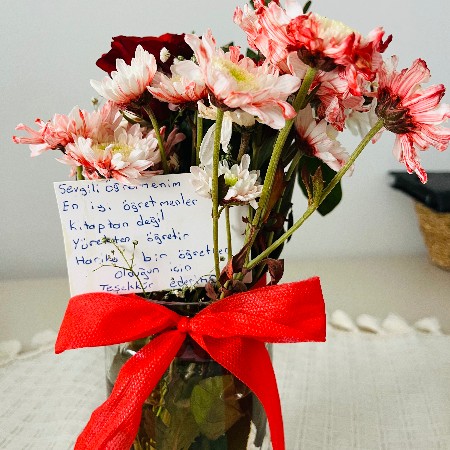 Sevgili öğretmenim
En iyi öğretmenler
kitaptan değil
Yürekten öğretir
Harika bir öğretmen
olduğun için
Teşekkür ederim